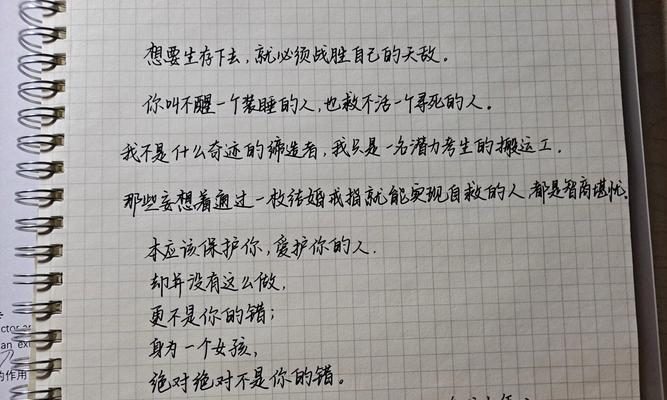 想要生存下去，就必须战胜自己的天敌。
你叫不醒一个装睡的人，也救不活一个寻死的人。
我不是什么奇迹的缔造者，我只是一名潜力考生的搬运工。
那些妄想着通过一枚结婚戒指就能实现自救的人，都是智商堪忧。
本应该保护你，爱护你的人，
却并没有这么做，
更不是你的错；
身为一个女孩，
绝对绝对不是你的错。
ctor a
an ex
的作用